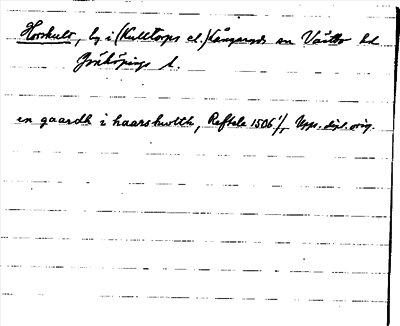 Horshult, by i (Kulltorps el.) Långaryds sn Västbo hd
Jönköpings l.
en gaardh i haarshwlth, Reftele 1506 1/1 Upps. dipl. orig.